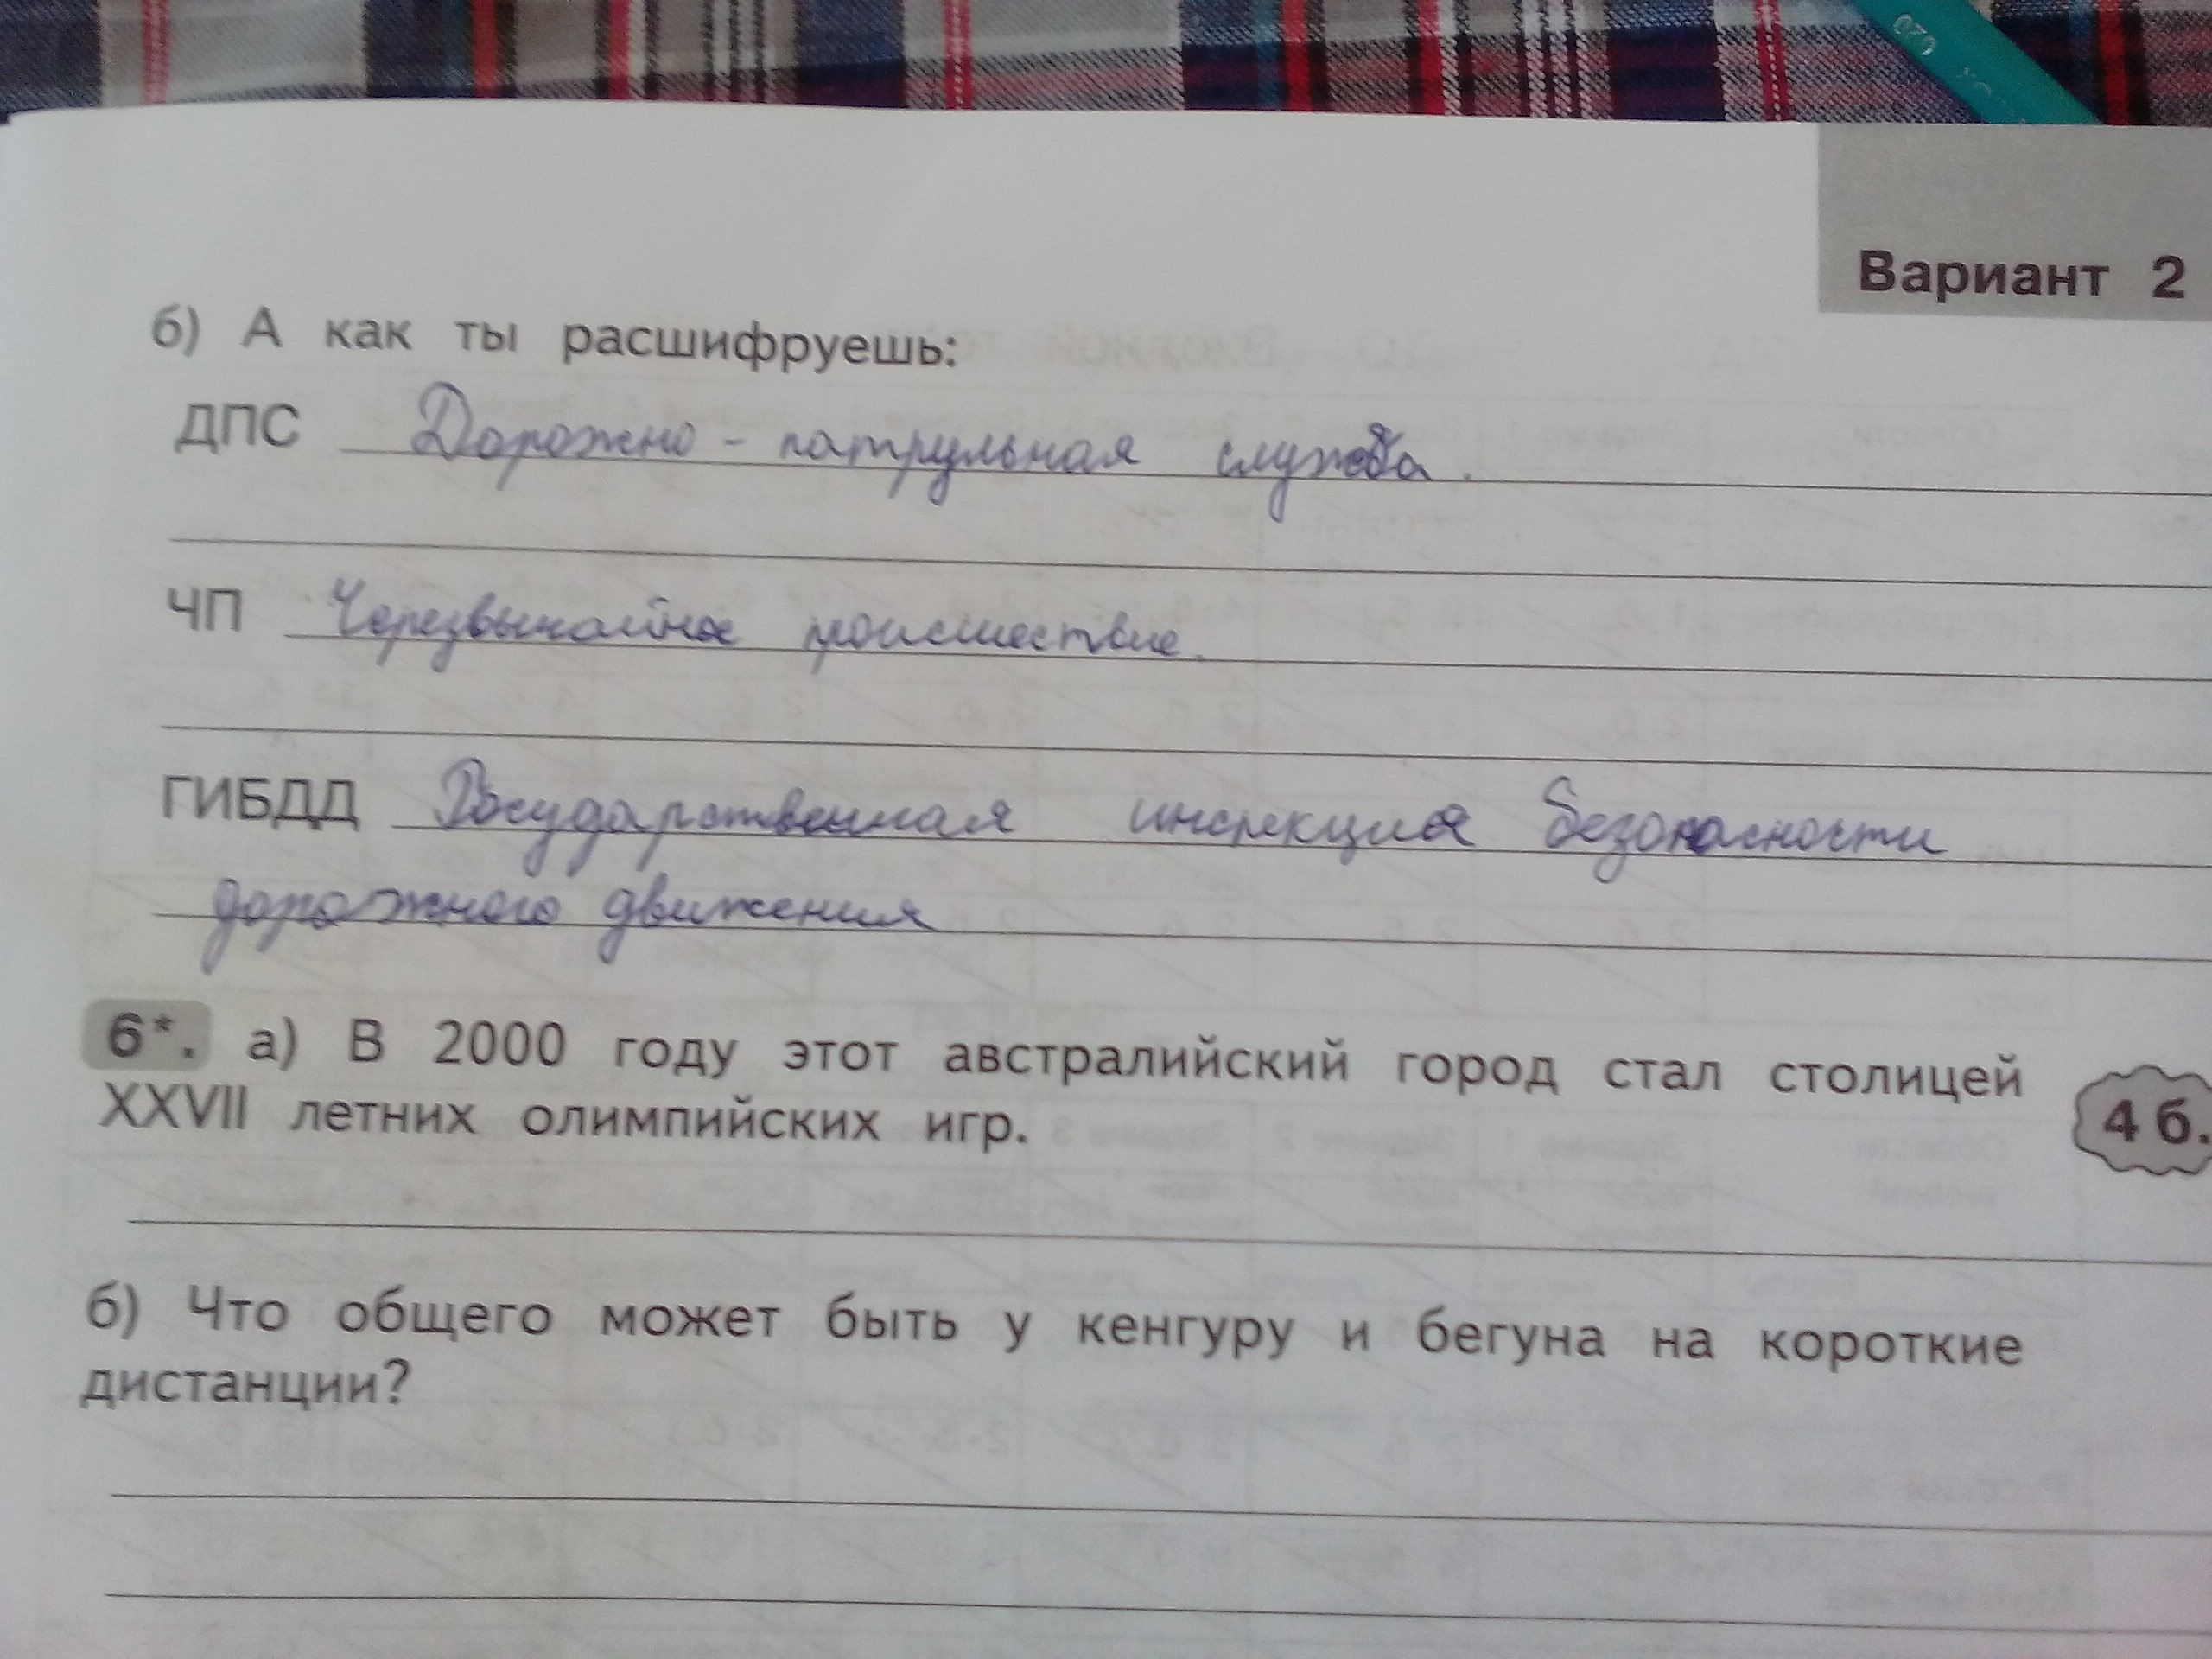 Вариант 2
б) А как ты расшифруешь:
ДПС Дорожно - патрульная служба.
ЧП Черезвычайное происшествие.
ГИБДД Государственная инспекция безопасности
дорожного движения
6*. а) В 2000 году этот австралийский город стал столицей
XXVII летних олимпийских игр.
4 б.
б) Что общего может быть у кенгуру и бегуна на короткие
дистанции?